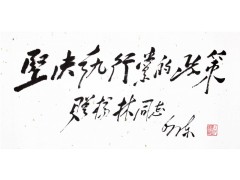 坚决执行党的政策
赠杨林同志